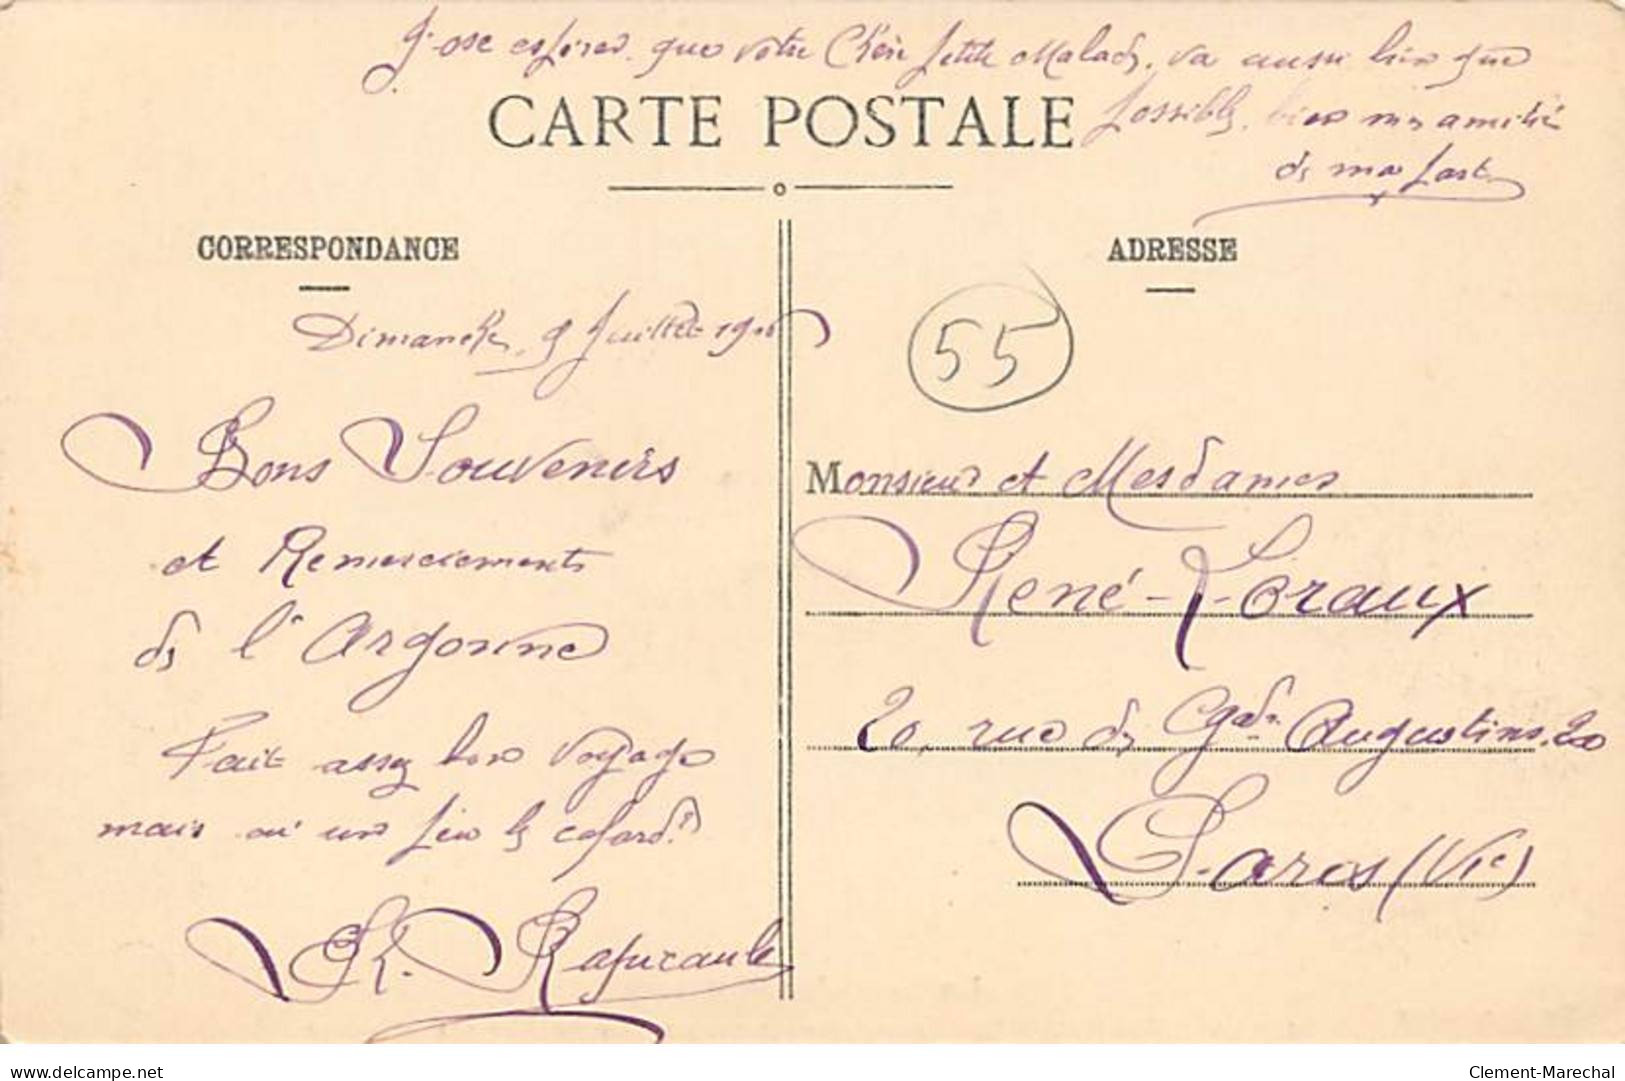 J'ose espérer que votre Chère petite Malade va aussi bien que
possible, bien mes amitiés
de ma part
CARTE POSTALE
CORRESPONDANCE
ADRESSE
Dimanche 9 Juillet
55
Bons Souvenirs
et Remerciements
de l'Argonne
Fait assez bon voyage
mais ai un peu le cafard!
Monsieur et Mesdames
René-Loraux
20, rue des Gds Augustins. 20
Paris (VIe)
Clement-Marechal
delcampe.net